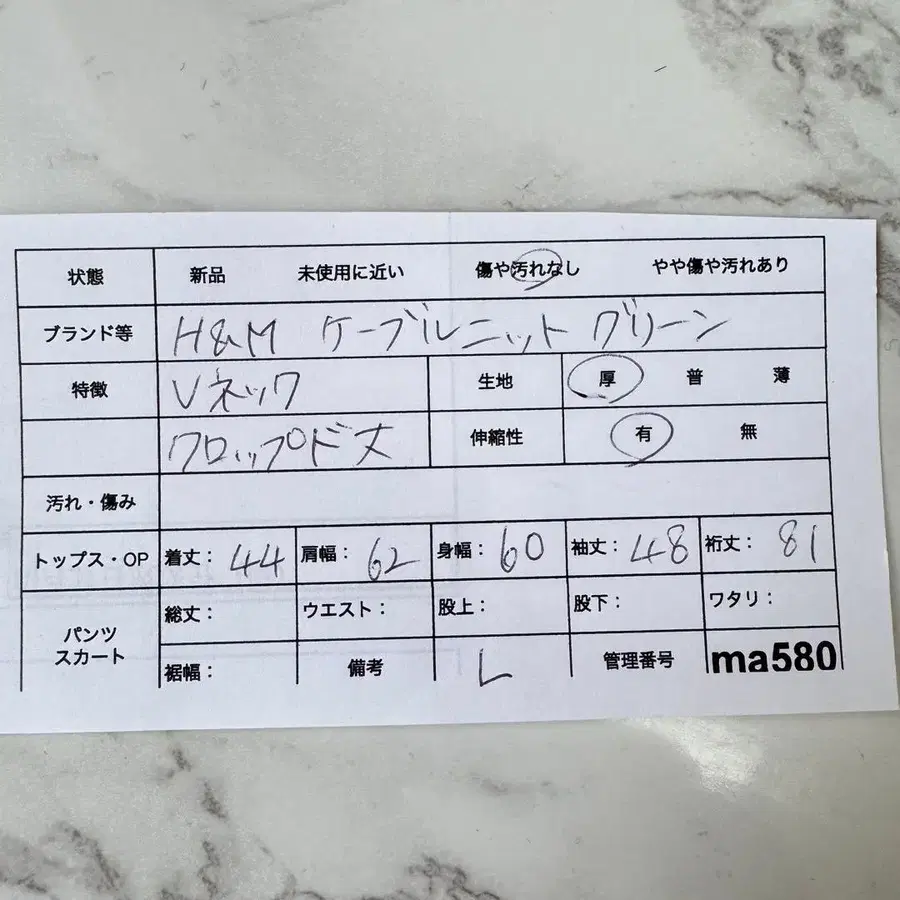 状態 新品 未使用に近い 傷や汚れなし やや傷や汚れあり
ブランド等 H&M ケーブルニット グリーン
特徴 Vネック 生地 厚 普 薄
クロップド丈 伸縮性 有 無
汚れ・傷み
トップス・OP 着丈: 44 肩幅: 62 身幅: 60 袖丈: 48 裄丈: 81
パンツ スカート 総丈: ウエスト: 股上: 股下: ワタリ:
裾幅: 備考 L 管理番号 ma580